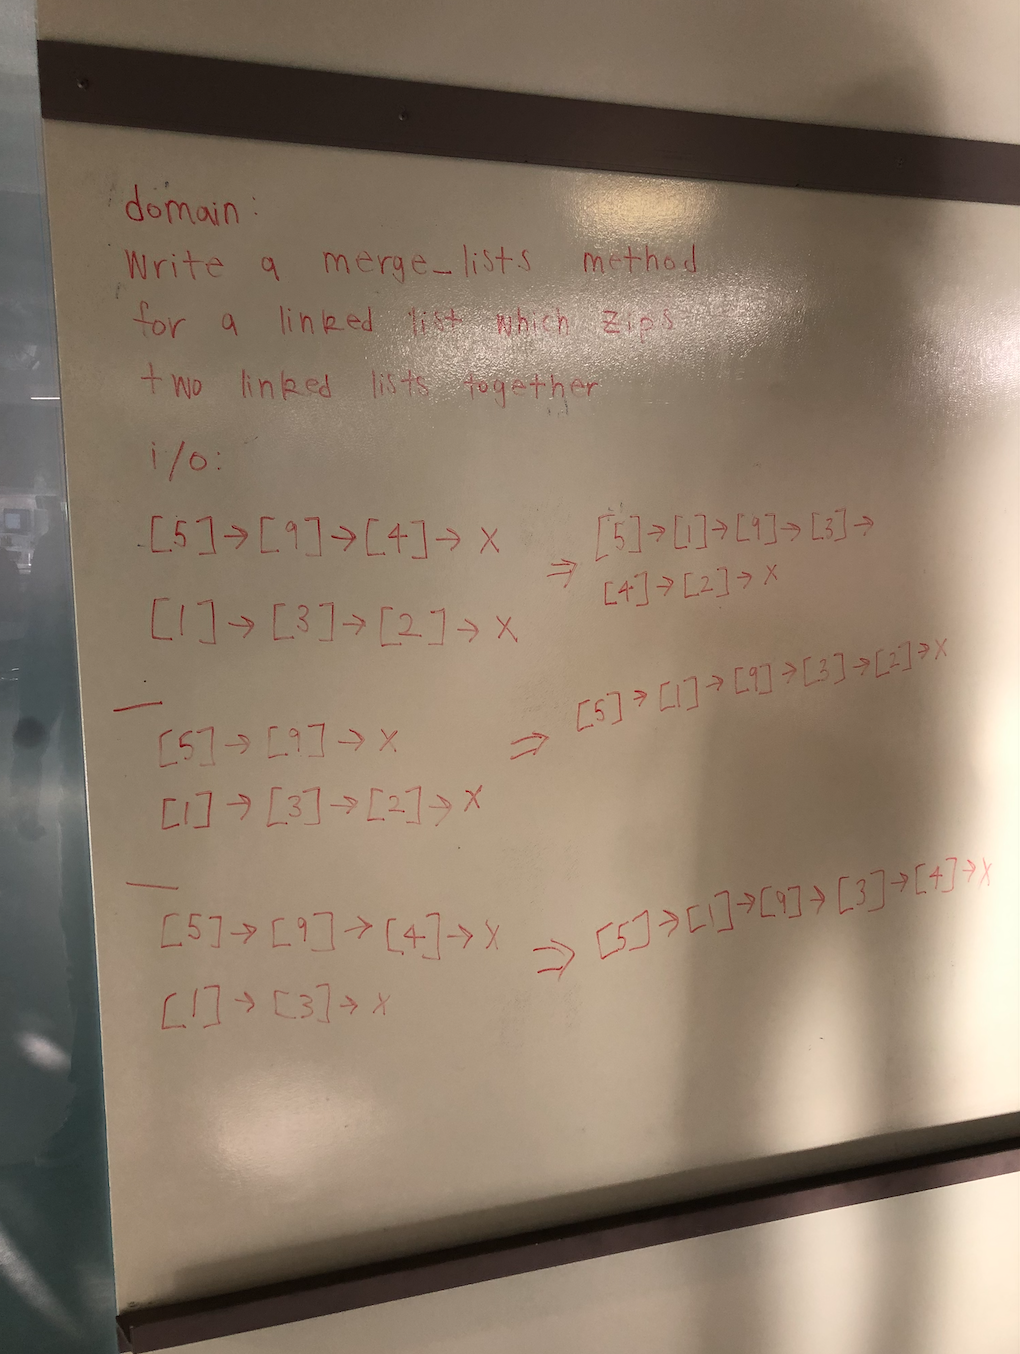 domain:
Write a merge_lists method
for a linked list which zips
two linked lists together
i/o:
[5]→[9]→[4]→X
[1]→[3]→[2]→X
⇒
[5]→[1]→[9]→[3]→
[4]→[2]→X
[5]→[9]→X
[1]→[3]→[2]→X
⇒
[5]→[1]→[9]→[3]→[2]→X
[5]→[9]→[4]→X
[1]→[3]→X
⇒
[5]→[1]→[9]→[3]→[4]→X